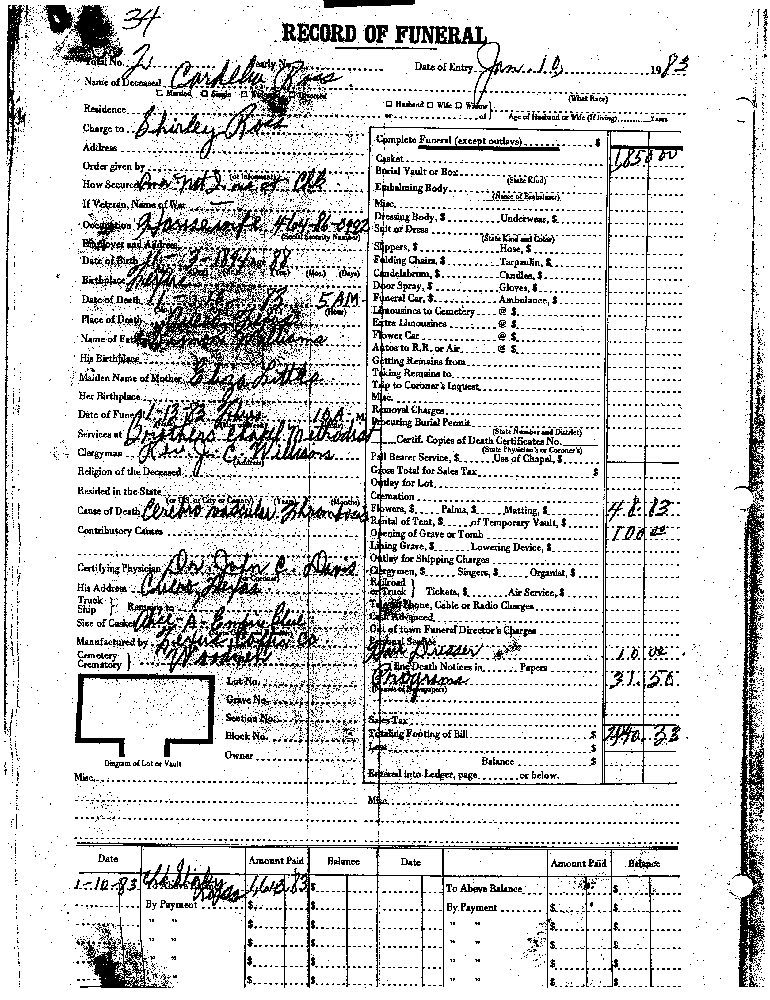 34
RECORD OF FUNERAL
Total No. 2 Yearly No. Date of Entry Jan. 10, 1983
Name of Deceased Cordelia Ross
(What Race)
☐ Married ☐ Single ☐ Widowed ☐ Divorced ☐ Husband ☐ Wife ☐ Widow
or of Age of Husband or Wife (If living) Years
Residence
Charge to Shirley Ross
Address
Order given by
(or Informant)
How Secured
If Veteran, Name of War
Occupation Housewife 464-86-0402
(Social Security Number)
Employer and Address
Date of Birth 11-3-1894 Age 88
(Yrs.) (Mos.) (Days)
Birthplace
Date of Death 5 AM
(Hour)
Place of Death
Name of Father Williams
His Birthplace
Maiden Name of Mother Eliza Little
Her Birthplace
Date of Funeral 1-13-83 10 A. M.
Services at Brothers Chapel Methodist
Clergyman Rev. J. C. Williams
(Address)
Religion of the Deceased
Resided in the State
(or U.S. or City or County) (Years) (Months)
Cause of Death Cerebro vascular Thrombosis
Contributory Causes
Certifying Physician Dr. John C. Davis
His Address Cuero, Texas
Truck
Ship } Remains to
Size of Casket Empire Blue
Manufactured by Texas Coffin Co
Cemetery
Crematory }
Lot No.
Grave No.
Section No.
Block No.
Owner
Diagram of Lot or Vault
Misc.
Complete Funeral (except outlays) $
Casket 1850 00
Burial Vault or Box
(State Kind)
Embalming Body
(Name of Embalmer)
Misc.
Dressing Body, $ Underwear, $
Suit or Dress
(State Kind and Color)
Slippers, $ Hose, $
Folding Chairs, $ Tarpaulin, $
Candelabrum, $ Candles, $
Door Spray, $ Gloves, $
Funeral Car, $ Ambulance, $
Limousines to Cemetery @ $
Extra Limousines @ $
Flower Car @ $
Autos to R.R. or Air @ $
Getting Remains from
Taking Remains to
Trip to Coroner's Inquest
Misc.
Removal Charges
Procuring Burial Permit
(State Number and District)
Certif. Copies of Death Certificates No.
(State Physician's or Coroner's)
Pall Bearer Service, $ Use of Chapel, $
Gross Total for Sales Tax $
Outlay for Lot
Cremation
Flowers, $ Palms, $ Matting, $ 48.83
Rental of Tent, $ of Temporary Vault, $
Opening of Grave or Tomb 100 00
Lining Grave, $ Lowering Device, $
Outlay for Shipping Charges
Clergymen, $ Singers, $ Organist, $
Railroad
or Truck } Tickets, $ Air Service, $
Telephone, Cable or Radio Charges
Cash Advanced
Out of town Funeral Director's Charges
Personal Service
Hair Dresser 10 00
Line Death Notices in Papers
Programs 31.50
(Names of Newspapers)
Sales Tax
Totaling Footing of Bill $ 2040.33
Less $
Balance $
Entered into Ledger, page or below.
Misc.
Date Amount Paid Balance Date Amount Paid Balance
1-10-83 $ To Above Balance $ $
By Payment $ By Payment $
" " $ " " $
" " $ " " $
" " $ " " $
" " $ " " $